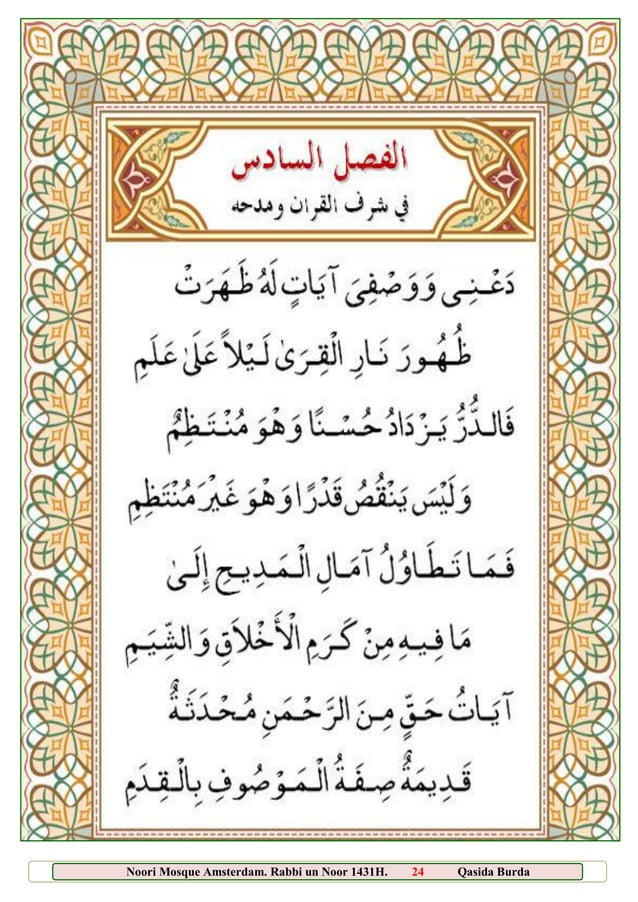 الفصل السادس
في شرف القران ومدحه
دَعْنِي وَوَصْفِيَ آيَاتٍ لَهُ ظَهَرَتْ
ظُهُورَ نَارِ الْقِرَىٰ لَيْلاً عَلَىٰ عَلَمِ
فَالدُّرُّ يَزْدَادُ حُسْنًا وَهْوَ مُنْتَظِمٌ
وَلَيْسَ يَنْقُصُ قَدْرًا وَهْوَ غَيْرَ مُنْتَظِمِ
فَمَا تَطَاوُلُ آمَالِ الْمَدِيحِ إِلَىٰ
مَا فِيهِ مِنْ كَرَمِ الْأَخْلَاقِ وَالشِّيَمِ
آيَاتُ حَقٍّ مِنَ الرَّحْمَنِ مُحْدَثَةٌ
قَدِيمَةٌ صِفَةُ الْمَوْصُوفِ بِالْقِدَمِ
Noori Mosque Amsterdam. Rabbi un Noor 1431H. 24 Qasida Burda